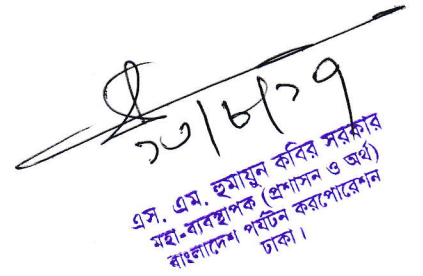 ১৩/৮/১৭
এস. এম. হুমায়ুন কবির সরকার
মহা-ব্যবস্থাপক (প্রশাসন ও অর্থ)
বাংলাদেশ পর্যটন করপোরেশন
ঢাকা।